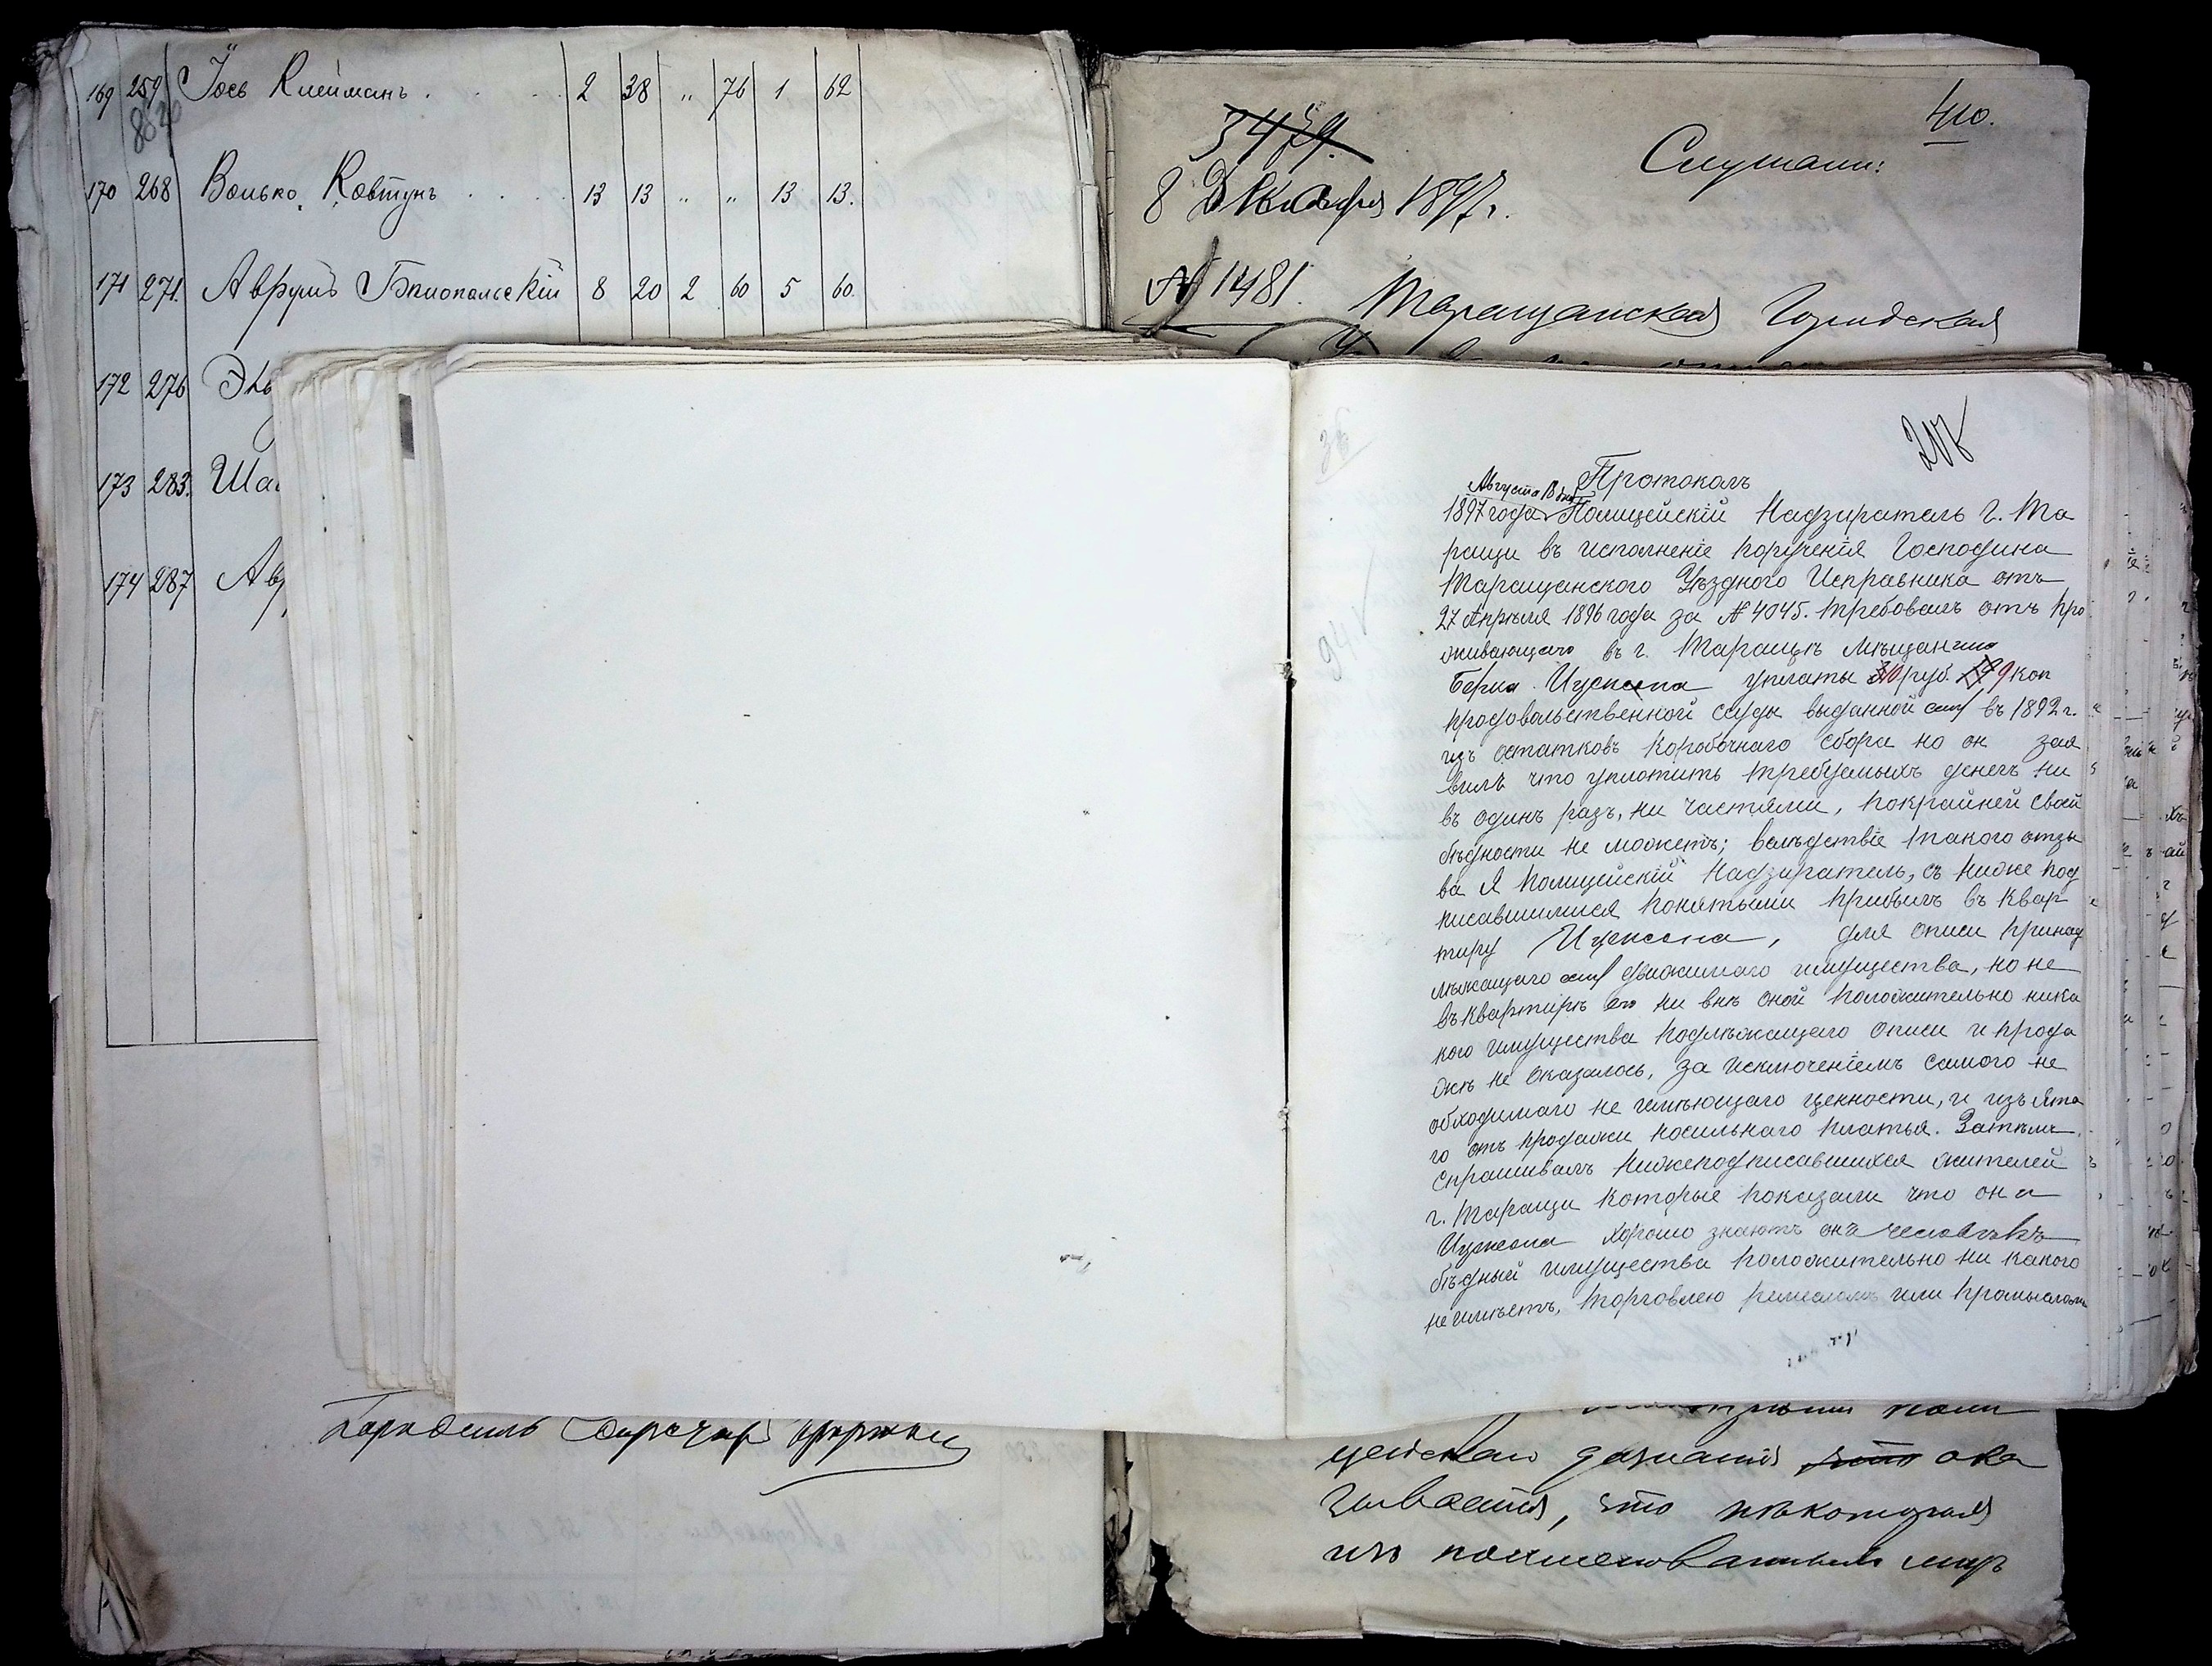 169 259 Іось Клейманъ . . . 2 38 „ 76 1 62
170 268 Волько Ковтунъ . . . . 13 13 „ „ 13 13.
171 271. Аврумъ Бѣлопольскій 8 20 2 60 5 60.
172 276
173 283. Ша
174 287 Ав
410.
Слушали:
8 Декабря 1897 г.
№ 1481. Таращанская Городская
Протоколъ
Августа
1897 года Полицейскій Надзиратель г. Та
ращи въ исполненіе порученія Господина
Таращанского Уѣздного Исправника отъ
27 Апрѣля 1896 года за № 4045. требовалъ отъ про
живающаго въ г. Таращѣ мѣщанина
Берка уплаты руб. 9 коп
продовольственной ссуды выданной ему въ 1892 г.
изъ остатковъ коробочнаго сбора но он зая
вилъ что уплотить требуемыхъ денегъ ни
въ одинъ разъ, ни частями, покрайней своей
бѣдности не можетъ; велѣдствіе такого отзы
ва Я Полицейскій Надзиратель, съ ниже под
писавшимися понятыми прибылъ въ квар
тиру для описи принад
лѣжащаго ему движимаго имущества, но не
въ квартирѣ его ни внѣ оной положительно ника
кого имущества подлѣжащего описи и прода
жѣ не оказалось, за исключеніемъ самого не
обходимаго не имѣющаго ценности, и изъ Ята
го отъ продажи носильнаго платья. Затѣмъ
спрашивалъ нижеподписавшихся жителей
г. Таращи которые показали что они
хорошо знаютъ онъ человѣкъ
бѣдный имущества положительно ни какого
не имѣетъ, торговлею ремесломъ или промысломъ
цейскаго дознанія что ока
зывается, что нѣкоторыя
изъ поименованныхъ лицъ